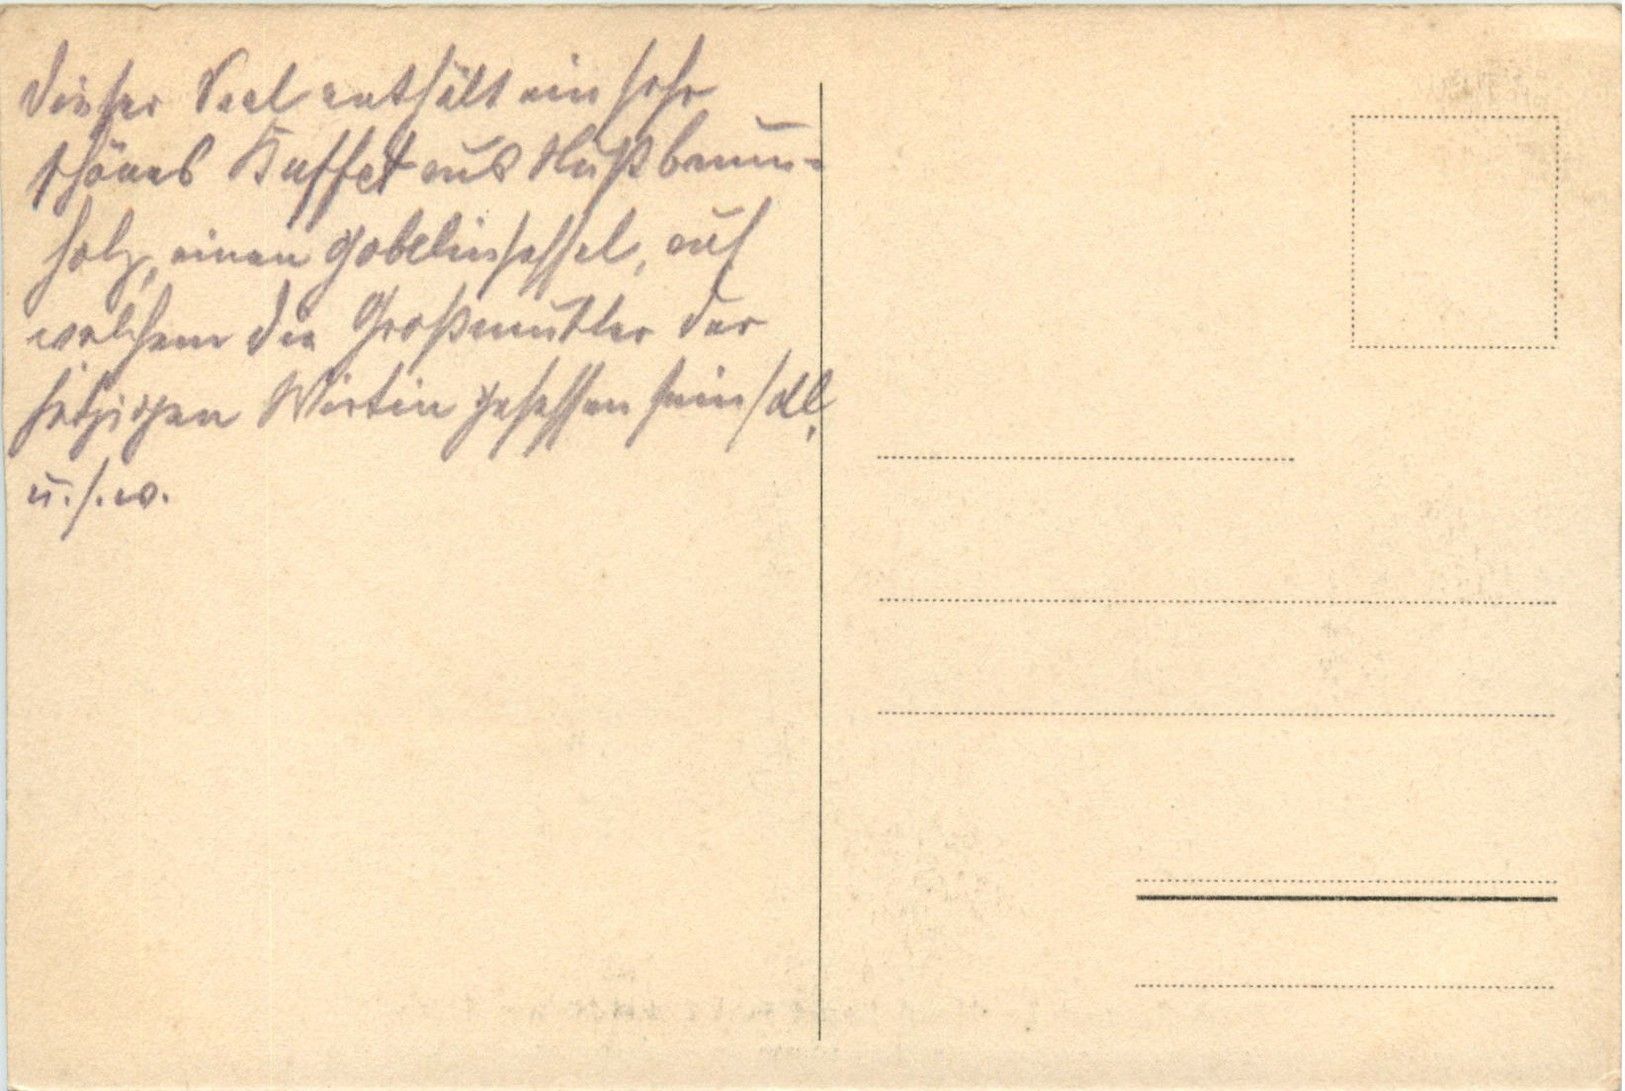 Dieser Saal enthält ein sehr
schönes Buffet aus Nußbaum-
holz, einen Gobelinsessel, auf
welchem die Großmutter der
jetzigen Wirtin gesessen sein soll,
u.s.w.